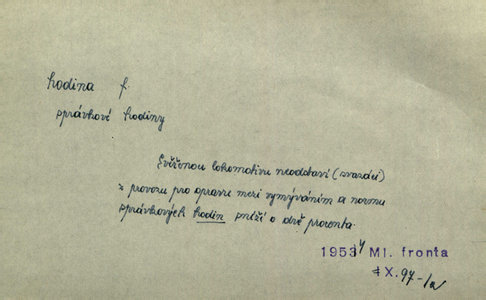 hodina f.
správkové hodiny
Svěřenou lokomotivu neodstaví (svazáci)
z provozu pro opravu mezi vymýváním a normu
správkových hodin sníží o dvě procenta.
1953 Ml. fronta
X. 97